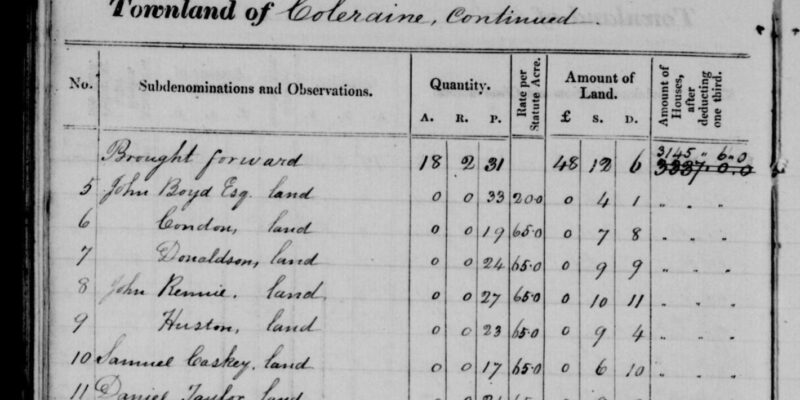 Townland of Coleraine, Continued
No. Subdenominations and Observations. Quantity. Rate per Statute Acre. Amount of Land. Amount of Houses, after deducting one third.
A. R. P. £ S. D.
Brought forward 18 2 31 48 12 6 3145 " 6 " 0
3337 " 0 " 0
5 John Boyd Esq. land 0 0 33 20.0 0 4 1 " " "
6 Condon, land 0 0 19 65.0 0 7 8 " " "
7 Donaldson, land 0 0 24 65.0 0 9 9 " " "
8 John Rennie. land 0 0 27 65.0 0 10 11 " " "
9 Huston, land 0 0 23 65.0 0 9 4 " " "
10 Samuel Caskey, land 0 0 17 65.0 0 6 10 " " "
11 Daniel Taylor land 0 0